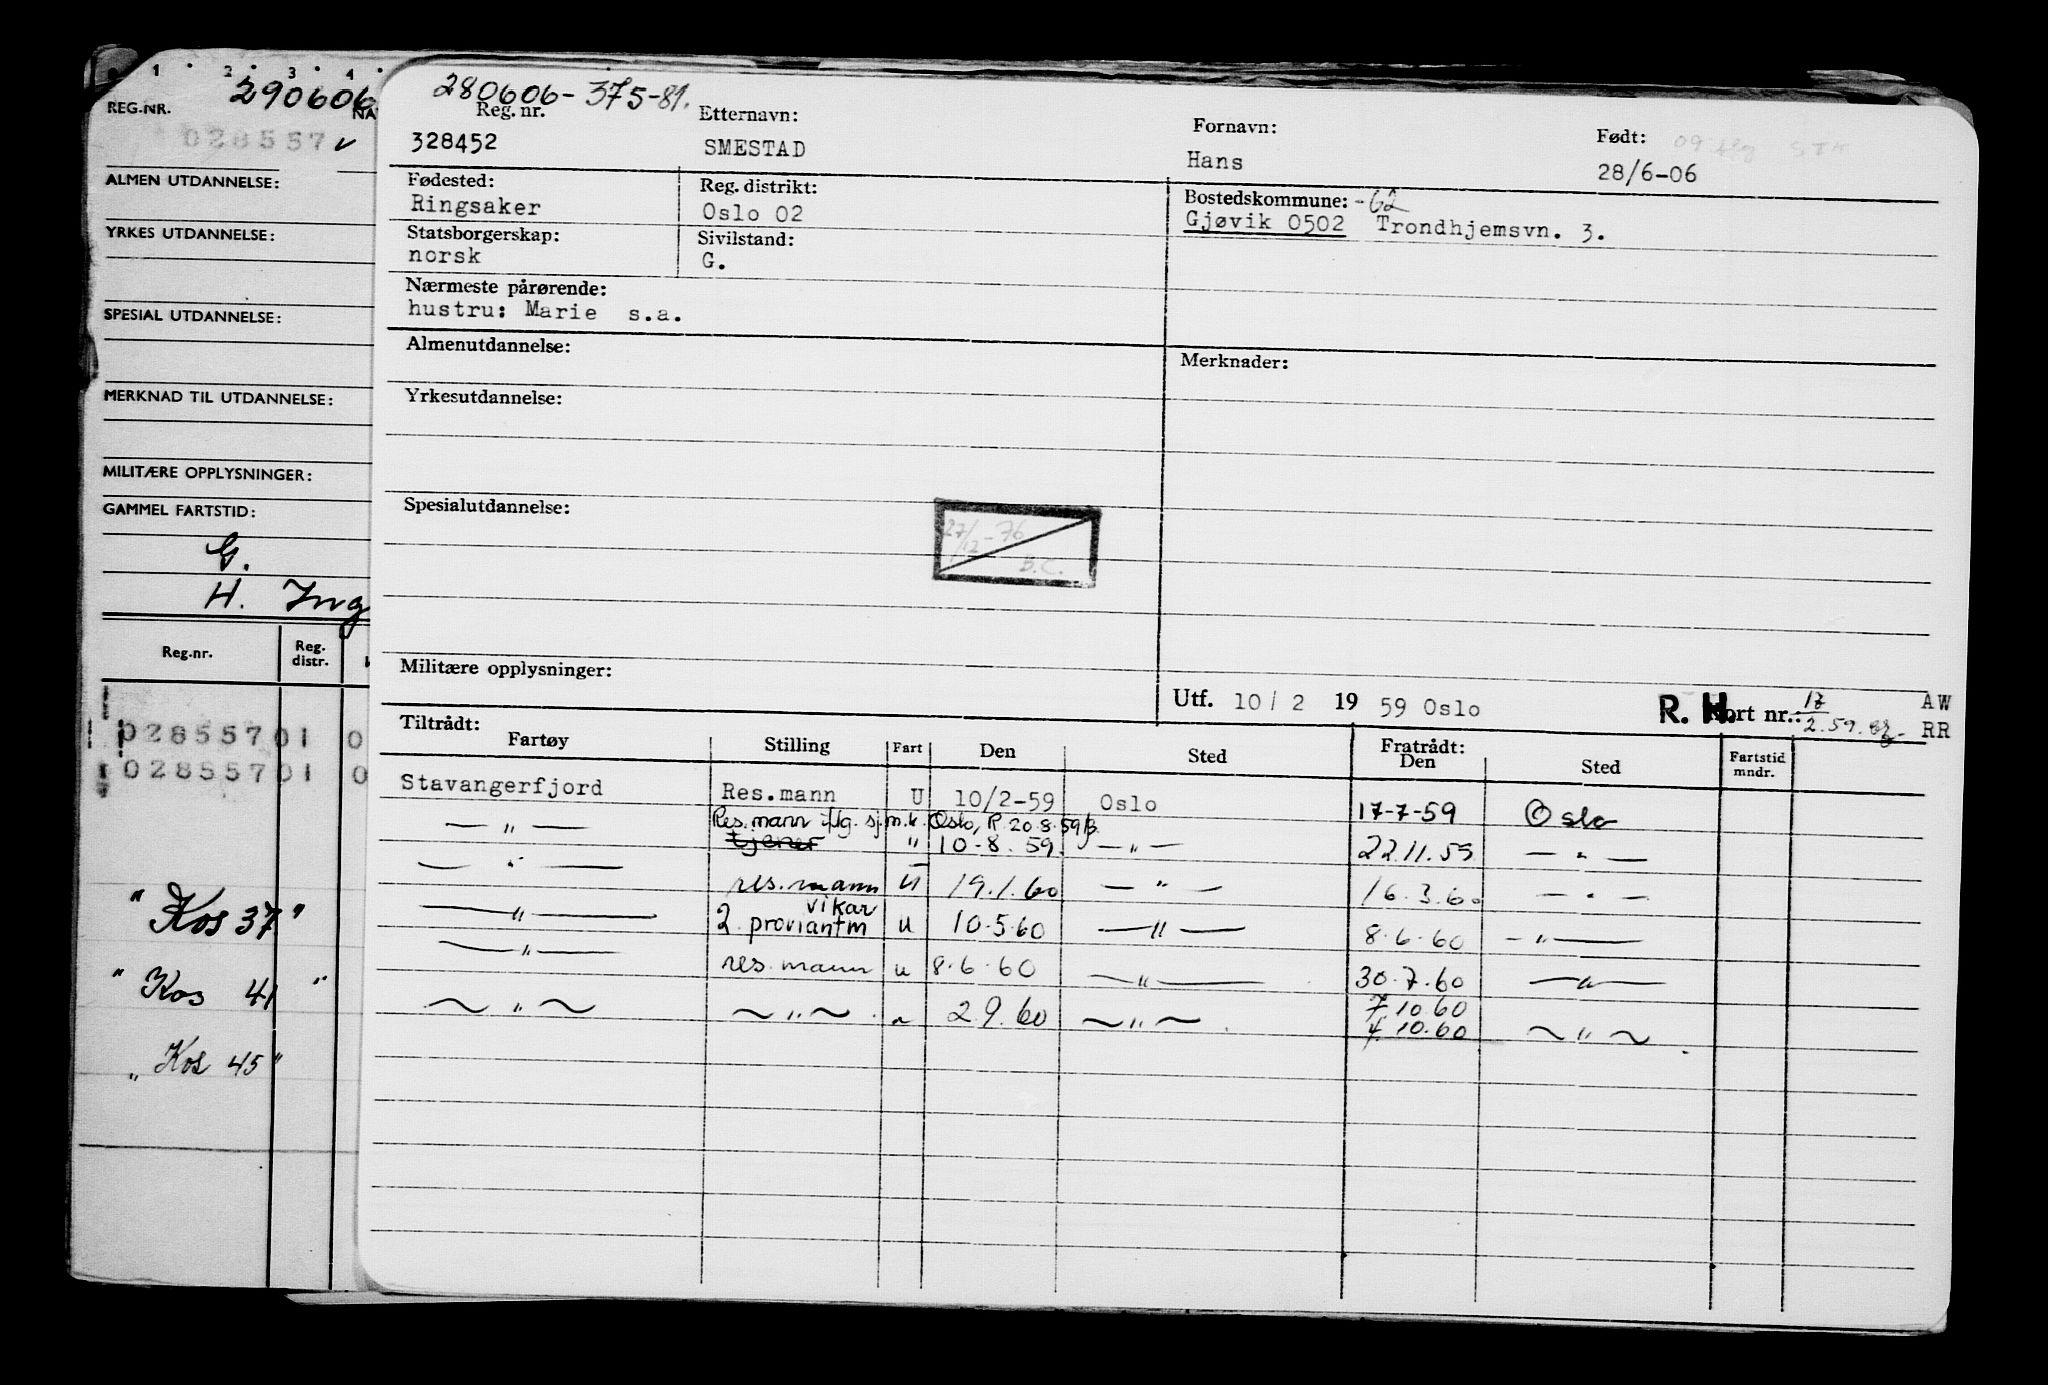 1 2 3 4
REG.NR. 290606 NA
028557 ✓
ALMEN UTDANNELSE:
YRKES UTDANNELSE:
SPESIAL UTDANNELSE:
MERKNAD TIL UTDANNELSE:
MILITÆRE OPPLYSNINGER:
GAMMEL FARTSTID:
G.
H. Ing
Reg.nr. Reg. distr.
028557 01 0
028557 01 0
"Kos 37"
"Kos 41"
"Kos 45"
280606-375-81.
Reg. nr. Etternavn: Fornavn: Født:
328452 SMESTAD Hans 28/6-06
Fødested: Reg. distrikt: Bostedskommune: -62
Ringsaker Oslo 02 Gjøvik 0502 Trondhjemsvn. 3.
Statsborgerskap: Sivilstand:
norsk G.
Nærmeste pårørende:
hustru: Marie s.a.
Almenutdannelse: Merknader:
Yrkesutdannelse:
Spesialutdannelse:
27/12-76
B.C.
Militære opplysninger:
Utf. 10/2 19 59 Oslo R.H. Kort nr.: 17/2.59. AW
RR
Tiltrådt: Fratrådt:
Fartøy Stilling Fart Den Sted Den Sted Fartstid mndr.
Stavangerfjord Res.mann U 10/2-59 Oslo 17-7-59 Oslo
Res.mann iflg. sj.m.k. Oslo, R. 20.8.59
— " — tjener " 10-8.59. — " — 22.11.59 — " —
— " — res.mann U 19.1.60 — " — 16.3.60 — " —
vikar
— " — 2. proviantm U 10.5.60 — " — 8.6.60 — " —
— " — res.mann u 8.6.60 — " — 30.7.60 — " —
7.10.60
~ " ~ ~ " ~ " 2.9.60 ~ " ~ 4.10.60 ~ " ~